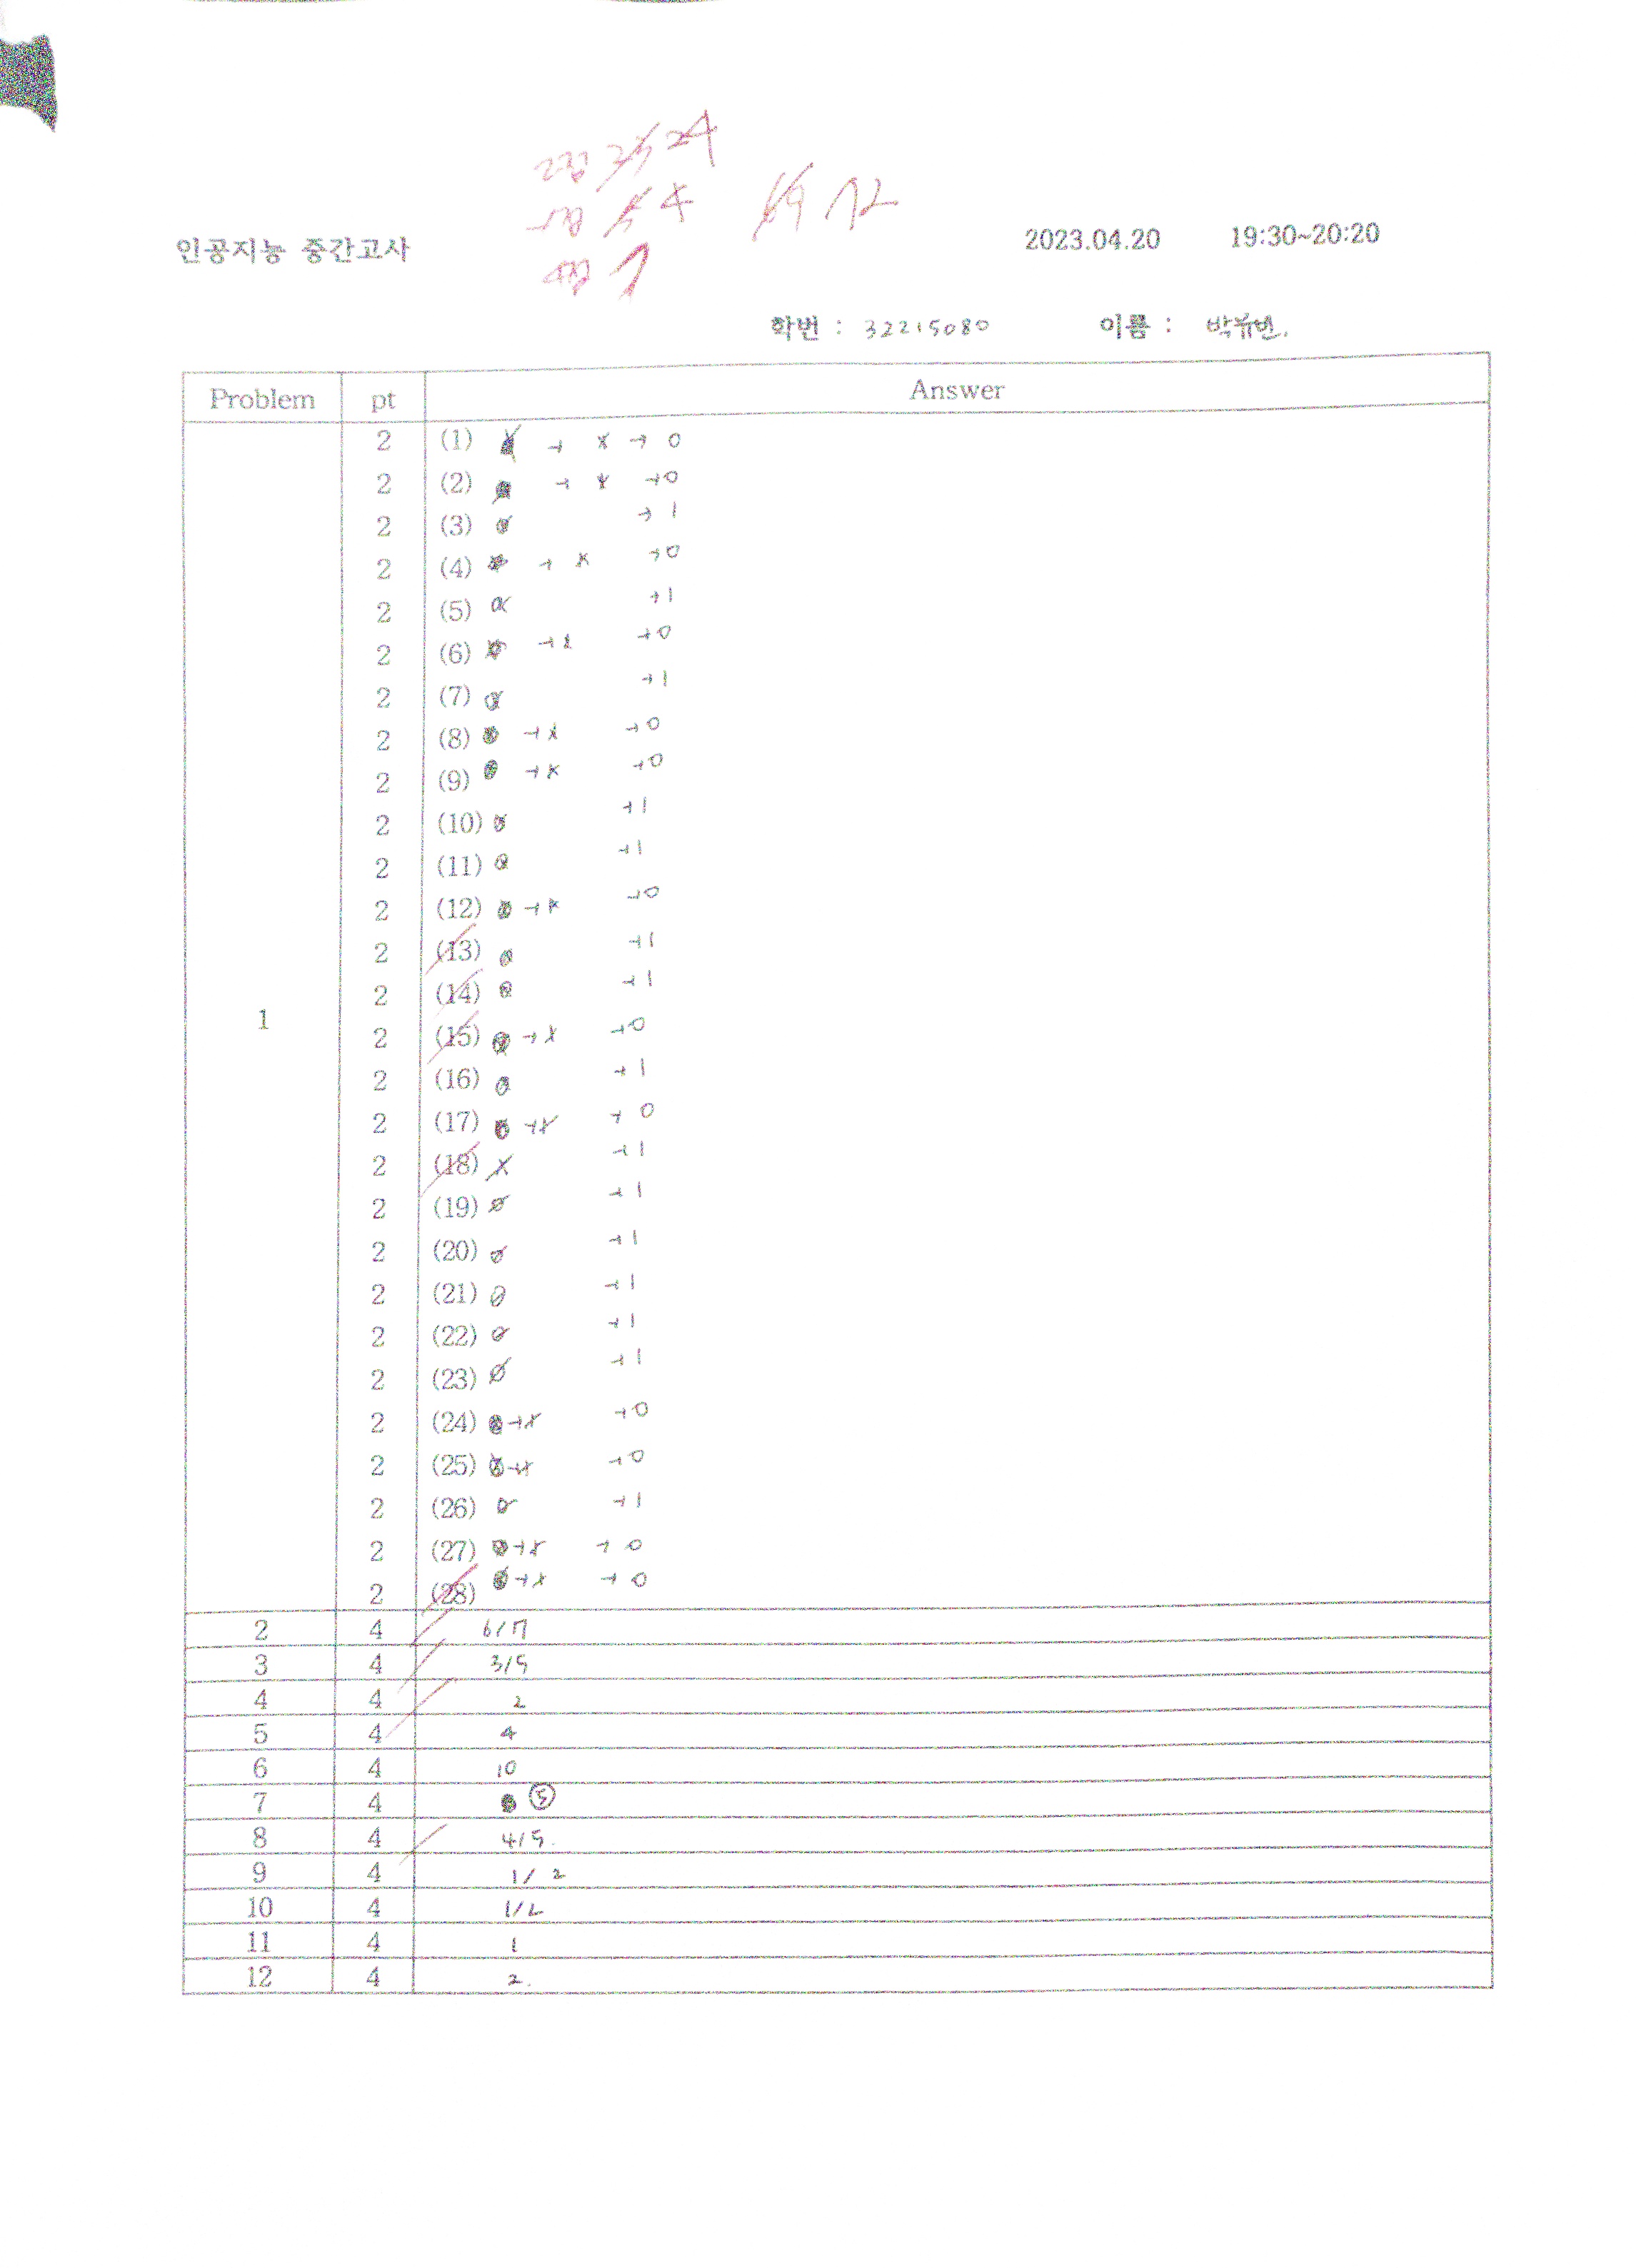 2점 25 24
-1점 5 4
4점 7
69 72
인공지능 중간고사 2023.04.20 19:30~20:20
학번 : 32215080 이름 : 박유빈.
Problem pt Answer
1
2 (1) → x → 0
2 (2) → x → 0
2 (3) → 1
2 (4) → x → 0
2 (5) → 1
2 (6) → x → 0
2 (7) → 1
2 (8) → x → 0
2 (9) → x → 0
2 (10) → 1
2 (11) → 1
2 (12) → x → 0
2 (13) → 1
2 (14) → 1
2 (15) → x → 0
2 (16) → 1
2 (17) → x → 0
2 (18) x → 1
2 (19) → 1
2 (20) → 1
2 (21) → 1
2 (22) → 1
2 (23) → 1
2 (24) → x → 0
2 (25) → x → 0
2 (26) → 1
2 (27) → x → 0
2 (28) → x → 0
2 4 6/17
3 4 3/5
4 4 2
5 4 4
6 4 10
7 4 ⑤
8 4 4/5.
9 4 1/2
10 4 1/2
11 4 1
12 4 2.